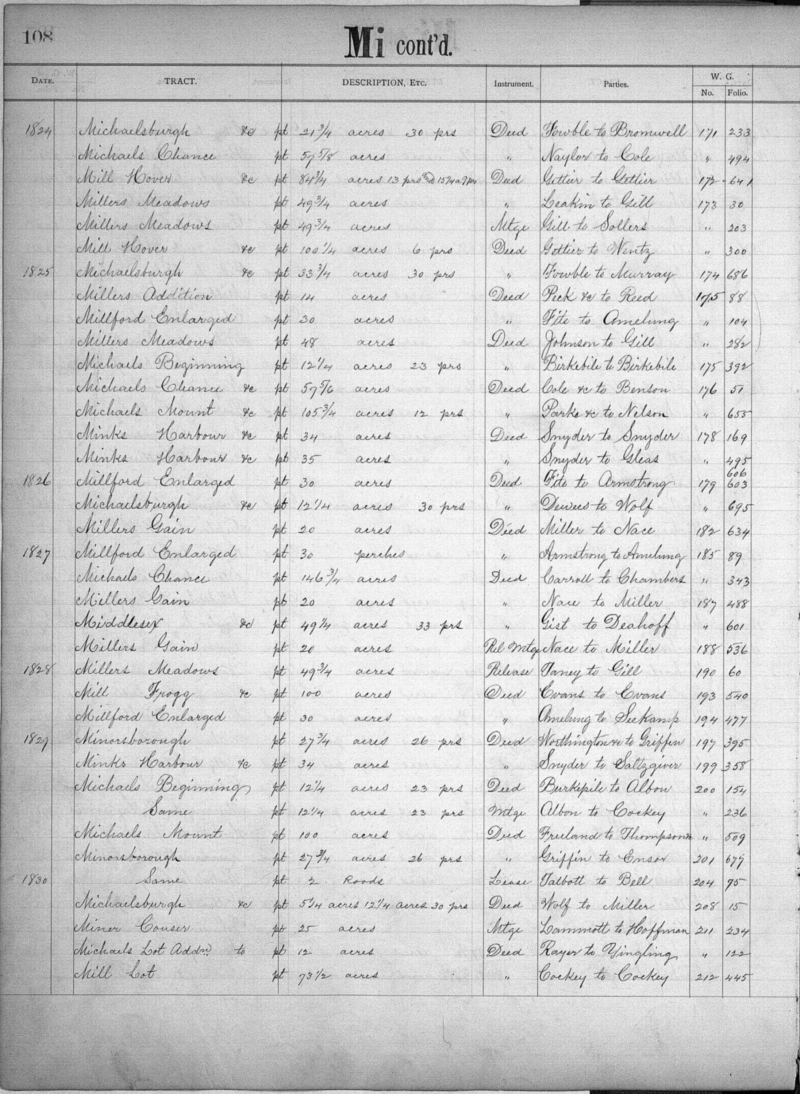 108
Mi cont'd.
DATE. TRACT. DESCRIPTION, ETC. Instrument. Parties. W. G.
No. Folio.
1824 Michaelsburgh &c pt 21 3/4 acres 30 prs Deed Fowble to Bromwell 171 233
Michaels Chance pt 57 5/8 acres " Naylor to Cole " 494
Mill Hover &c pt 84 3/4 acres 13 prs Deed Gettier to Gettier 172 641
Millers Meadows pt 49 3/4 acres " Leakin to Gill 173 30
Millers Meadows pt 49 3/4 acres Mtge Gill to Sollers " 203
Mill Hover &c pt 100 1/4 acres 6 prs Deed Gettier to Wentz " 300
1825 Michaelsburgh &c pt 33 3/4 acres 30 prs " Fowble to Murray 174 686
Millers Addition pt 14 acres Deed Peek &c to Reed 175 88
Millford Enlarged pt 30 acres " Fite to Amelung " 104
Millers Meadows pt 48 acres Deed Johnson to Gill " 282
Michaels Beginning pt 12 1/4 acres 23 prs " Birkebile to Birkebile 175 392
Michaels Chance &c pt acres Deed Cole &c to Benson 176 51
Michaels Mount &c pt 105 3/4 acres 12 prs " Parks &c to Nelson " 655
Minks Harbour &c pt 34 acres Deed Snyder to Snyder 178 169
Minks Harbour &c pt 35 acres " Snyder to Gleas " 495
1826 Millford Enlarged pt 30 acres Deed Fite to Armstrong 179 606 603
Michaelsburgh &c pt 12 1/4 acres 30 prs " Dewees to Wolf " 695
Millers Gain pt 20 acres Deed Miller to Nace 182 634
1827 Millford Enlarged pt 30 perches " Armstrong to Amelung 185 89
Michaels Chance pt 146 3/4 acres Deed Carroll to Chambers " 343
Millers Gain pt 20 acres " Nace to Miller 187 488
Middlesex &c pt 49 1/4 acres 33 prs " Gist to Deahoff " 601
Millers Gain pt 20 acres Rel Mtge Nace to Miller 188 536
1828 Millers Meadows pt 49 3/4 acres Release Taney to Gill 190 60
Mill Frogg &c pt 100 acres Deed Evans to Evans 193 540
Millford Enlarged pt 30 acres " Amelung to Seekamp 194 477
1829 Minorsborough pt 27 3/4 acres 26 prs Deed Worthington &c to Griffin 197 395
Minks Harbour &c pt 34 acres " Snyder to Saltzgiver 199 358
Michaels Beginning pt 12 1/4 acres 23 prs Deed Burkepile to Albon 200 154
Same pt 12 1/4 acres 23 prs Mtge Albon to Cockey " 236
Michaels Mount pt 100 acres Deed Freeland to Thompson " 509
Minorsborough pt 27 3/4 acres 26 prs " Griffin to Ensor 201 677
1830 Same pt 2 Roods Lease Talbott to Bell 204 95
Michaelsburgh &c pt 5 1/4 acres 12 1/4 acres 30 prs Deed Wolf to Miller 208 15
Miner Couser pt 25 acres Mtge Lammott to Hoffman 211 234
Michaels Lot Addn. to pt 12 acres Deed Rayer to Yingling " 122
Mill Lot pt 73 1/2 acres " Cockey to Cockey 212 445